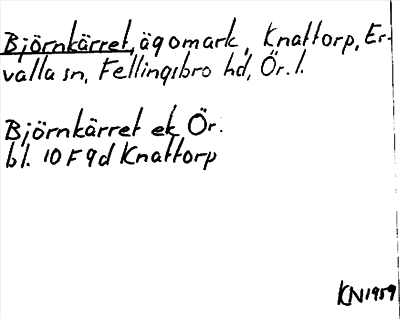 Björnkärret, ägomark, Knattorp, Er-
valla sn, Fellingsbro hd, Ör. l.
Björnkärret ek Ör.
bl. 10 F 9d Knattorp
KN 1959